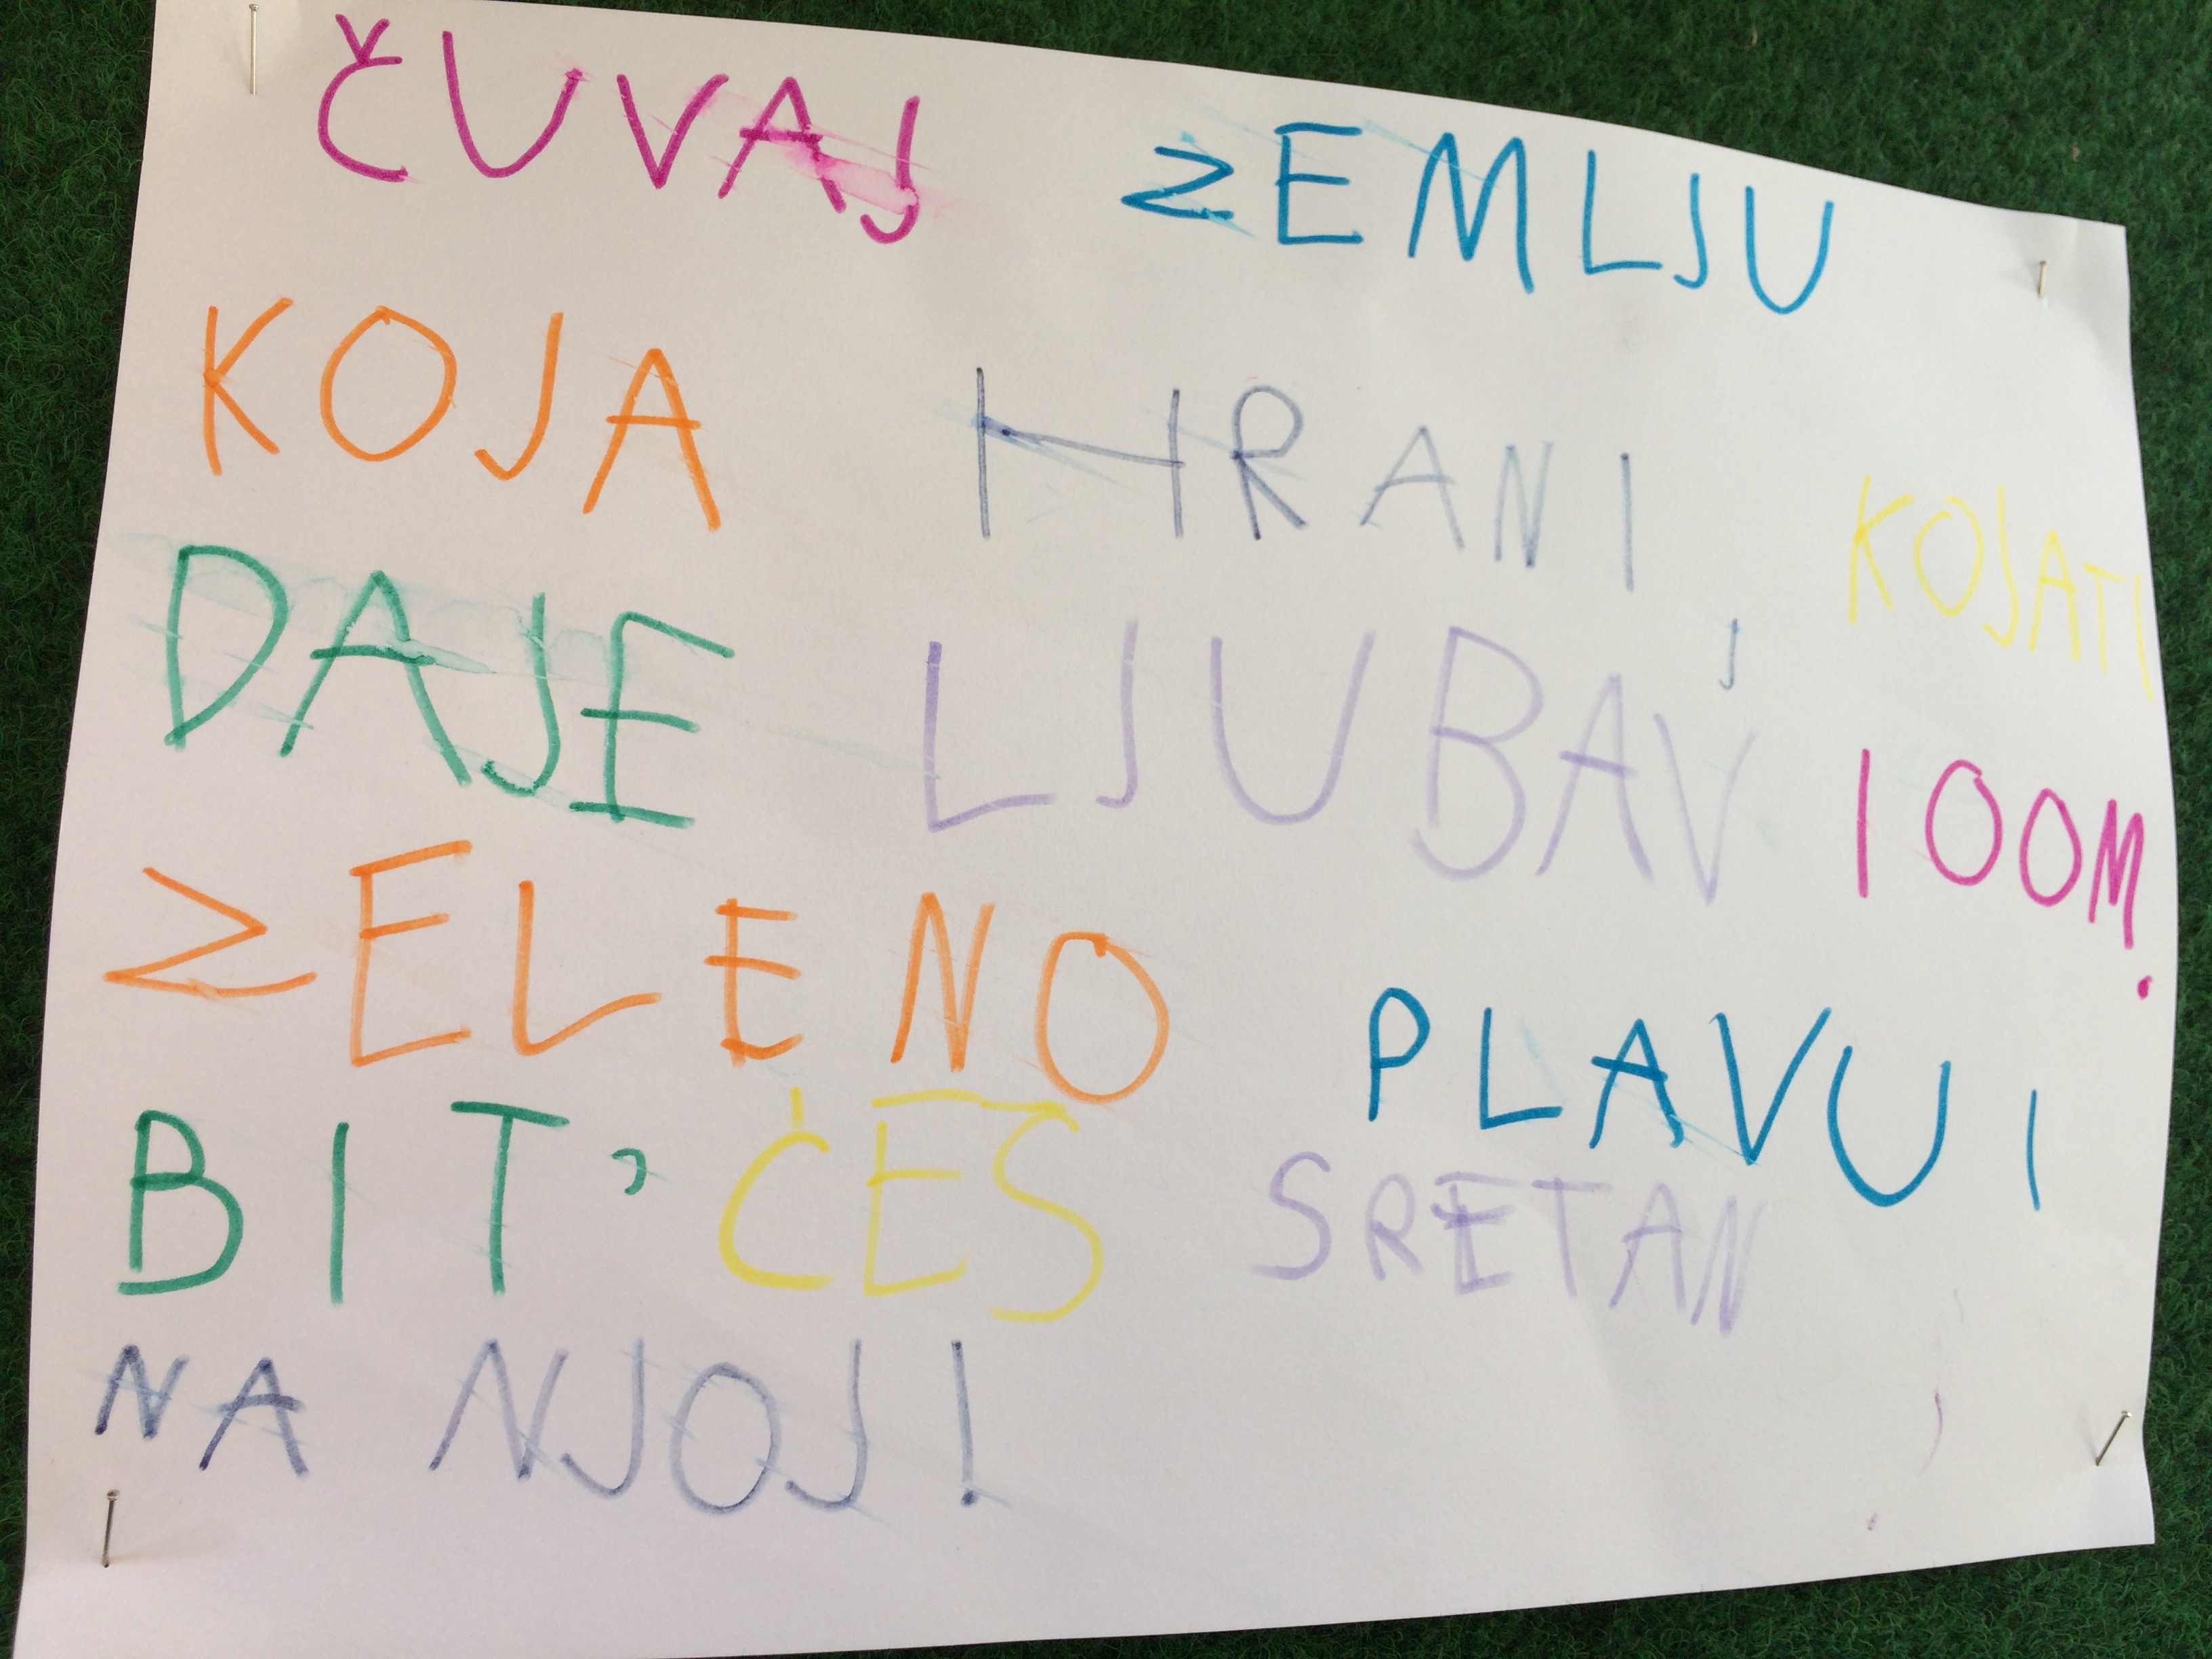 ČUVAJ ZEMLJU
KOJA HRANI, KOJATI
DAJE LJUBAV 100M.
ZELENO PLAVU I
BIT, ĆEŠ SRETAN
NA NJOJ!